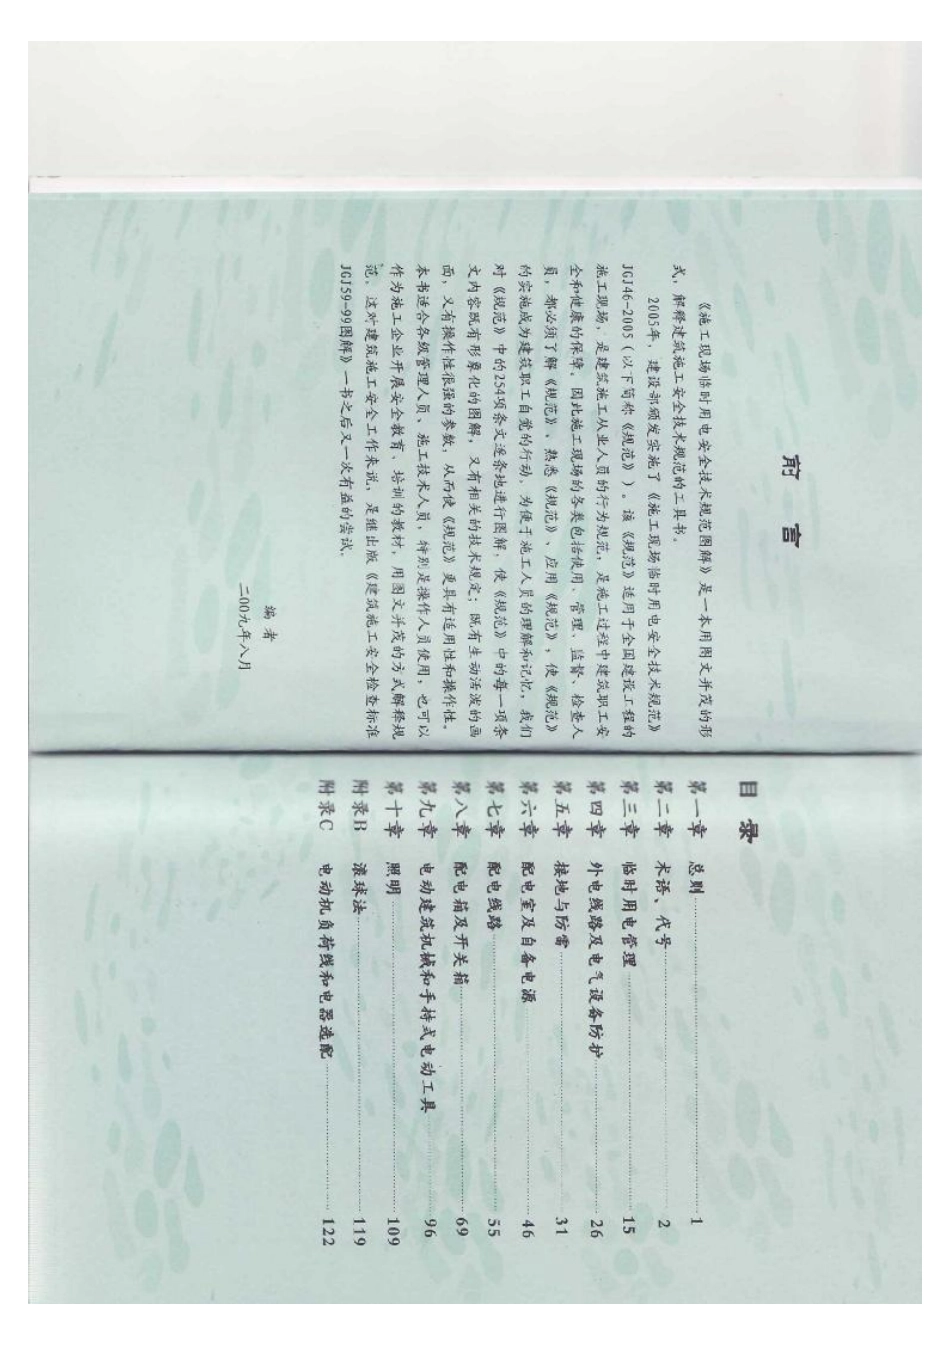 前 言
《施工现场临时用电安全技术规范图解》是一本用图文并茂的形
式，解释建筑施工安全技术规范的工具书。
2005年，建设部颁发实施了《施工现场临时用电安全技术规范》
JGJ46-2005（以下简称《规范》）。该《规范》适用于全国建设工程的
施工现场，是建筑施工从业人员的行为规范，是施工过程中建筑职工安
全和健康的保障。因此施工现场的各类包括使用、管理、监督、检查人
员，都必须了解《规范》、熟悉《规范》、应用《规范》，使《规范》
的实施成为建筑职工自觉的行动。为便于施工人员的理解和记忆，我们
对《规范》中的254项条文逐条地进行图解，使《规范》中的每一项条
文内容既有形象化的图解，又有相关的技术规定；既有生动活泼的画
面，又有操作性很强的参数，从而使《规范》更具有适用性和操作性。
本书适合各级管理人员、施工技术人员，特别是操作人员使用，也可以
作为施工企业开展安全教育、培训的教材，用图文并茂的方式解释规
范，这对建筑施工安全工作来说，是继出版《建筑施工安全检查标准
JGJ59-99图解》一书之后又一次有益的尝试。
编 者
二00九年八月
目 录
第一章 总则……1
第二章 术语、代号……2
第三章 临时用电管理……15
第四章 外电线路及电气设备防护……26
第五章 接地与防雷……31
第六章 配电室及自备电源……46
第七章 配电线路……55
第八章 配电箱及开关箱……69
第九章 电动建筑机械和手持式电动工具……96
第十章 照明……109
附录B 滚球法……119
附录C 电动机负荷线和电器选配……122